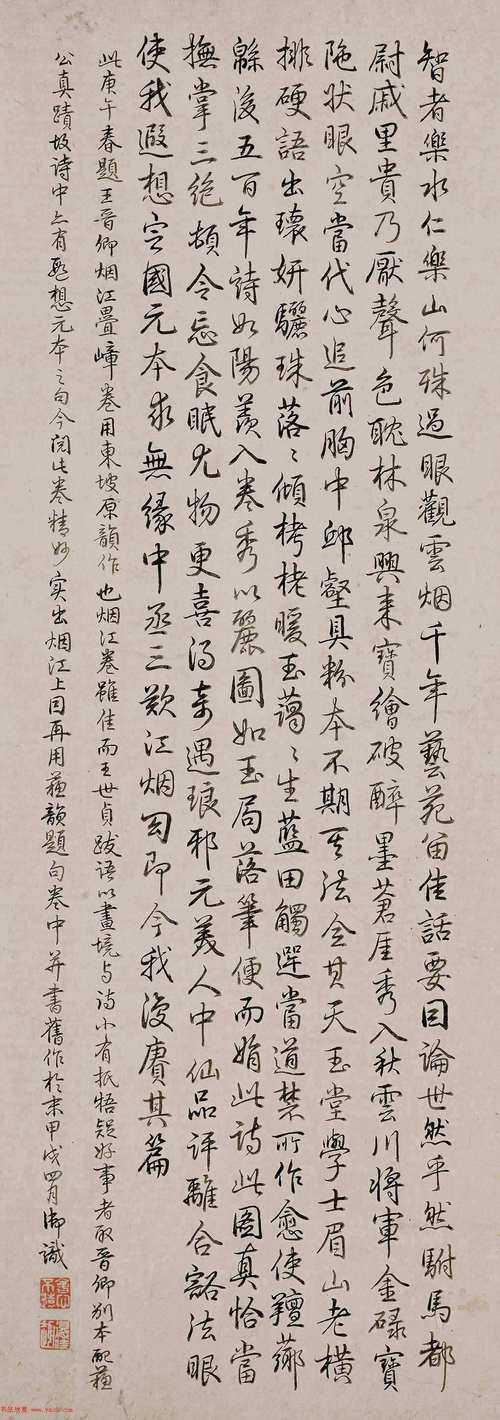 智者樂水仁樂山何殊過眼觀雲烟千年藝苑留佳話要因論世然乎然駙馬都
尉戚里貴乃厭聲色耽林泉興來寶繪破醉墨蒼厓秀入秋雲川將軍金碌寶
陁狀眼空當代心追前胸中邱壑具粉本不期法合其天玉堂學士眉山老橫
排硬語出瓌妍驪珠落〻傾栲栳暖玉藹〻生藍田觸選當道禁所作愈使羶薌
緜後五百年詩如陽羨入卷秀以麗圖如玉局落筆便而娟此詩此圖真恰當
撫掌三絕頓令忘食眠尤物更喜得奇遇琅邪元美人中仙品評離合豁法眼
使我遐想定國元本求無緣中丞三歎江烟句即今我復賡其篇
此庚午春題王晉卿烟江疊嶂卷用東坡原韻作也烟江卷雖佳而王世貞跋語以畫境与詩小有抵牾疑好事者取晉卿別本配蘇
公真蹟故詩中亦有遐想元本之句今閱此卷精妙实出烟江上因再用蘇韻題句卷中并書舊作於末甲戌四月御識